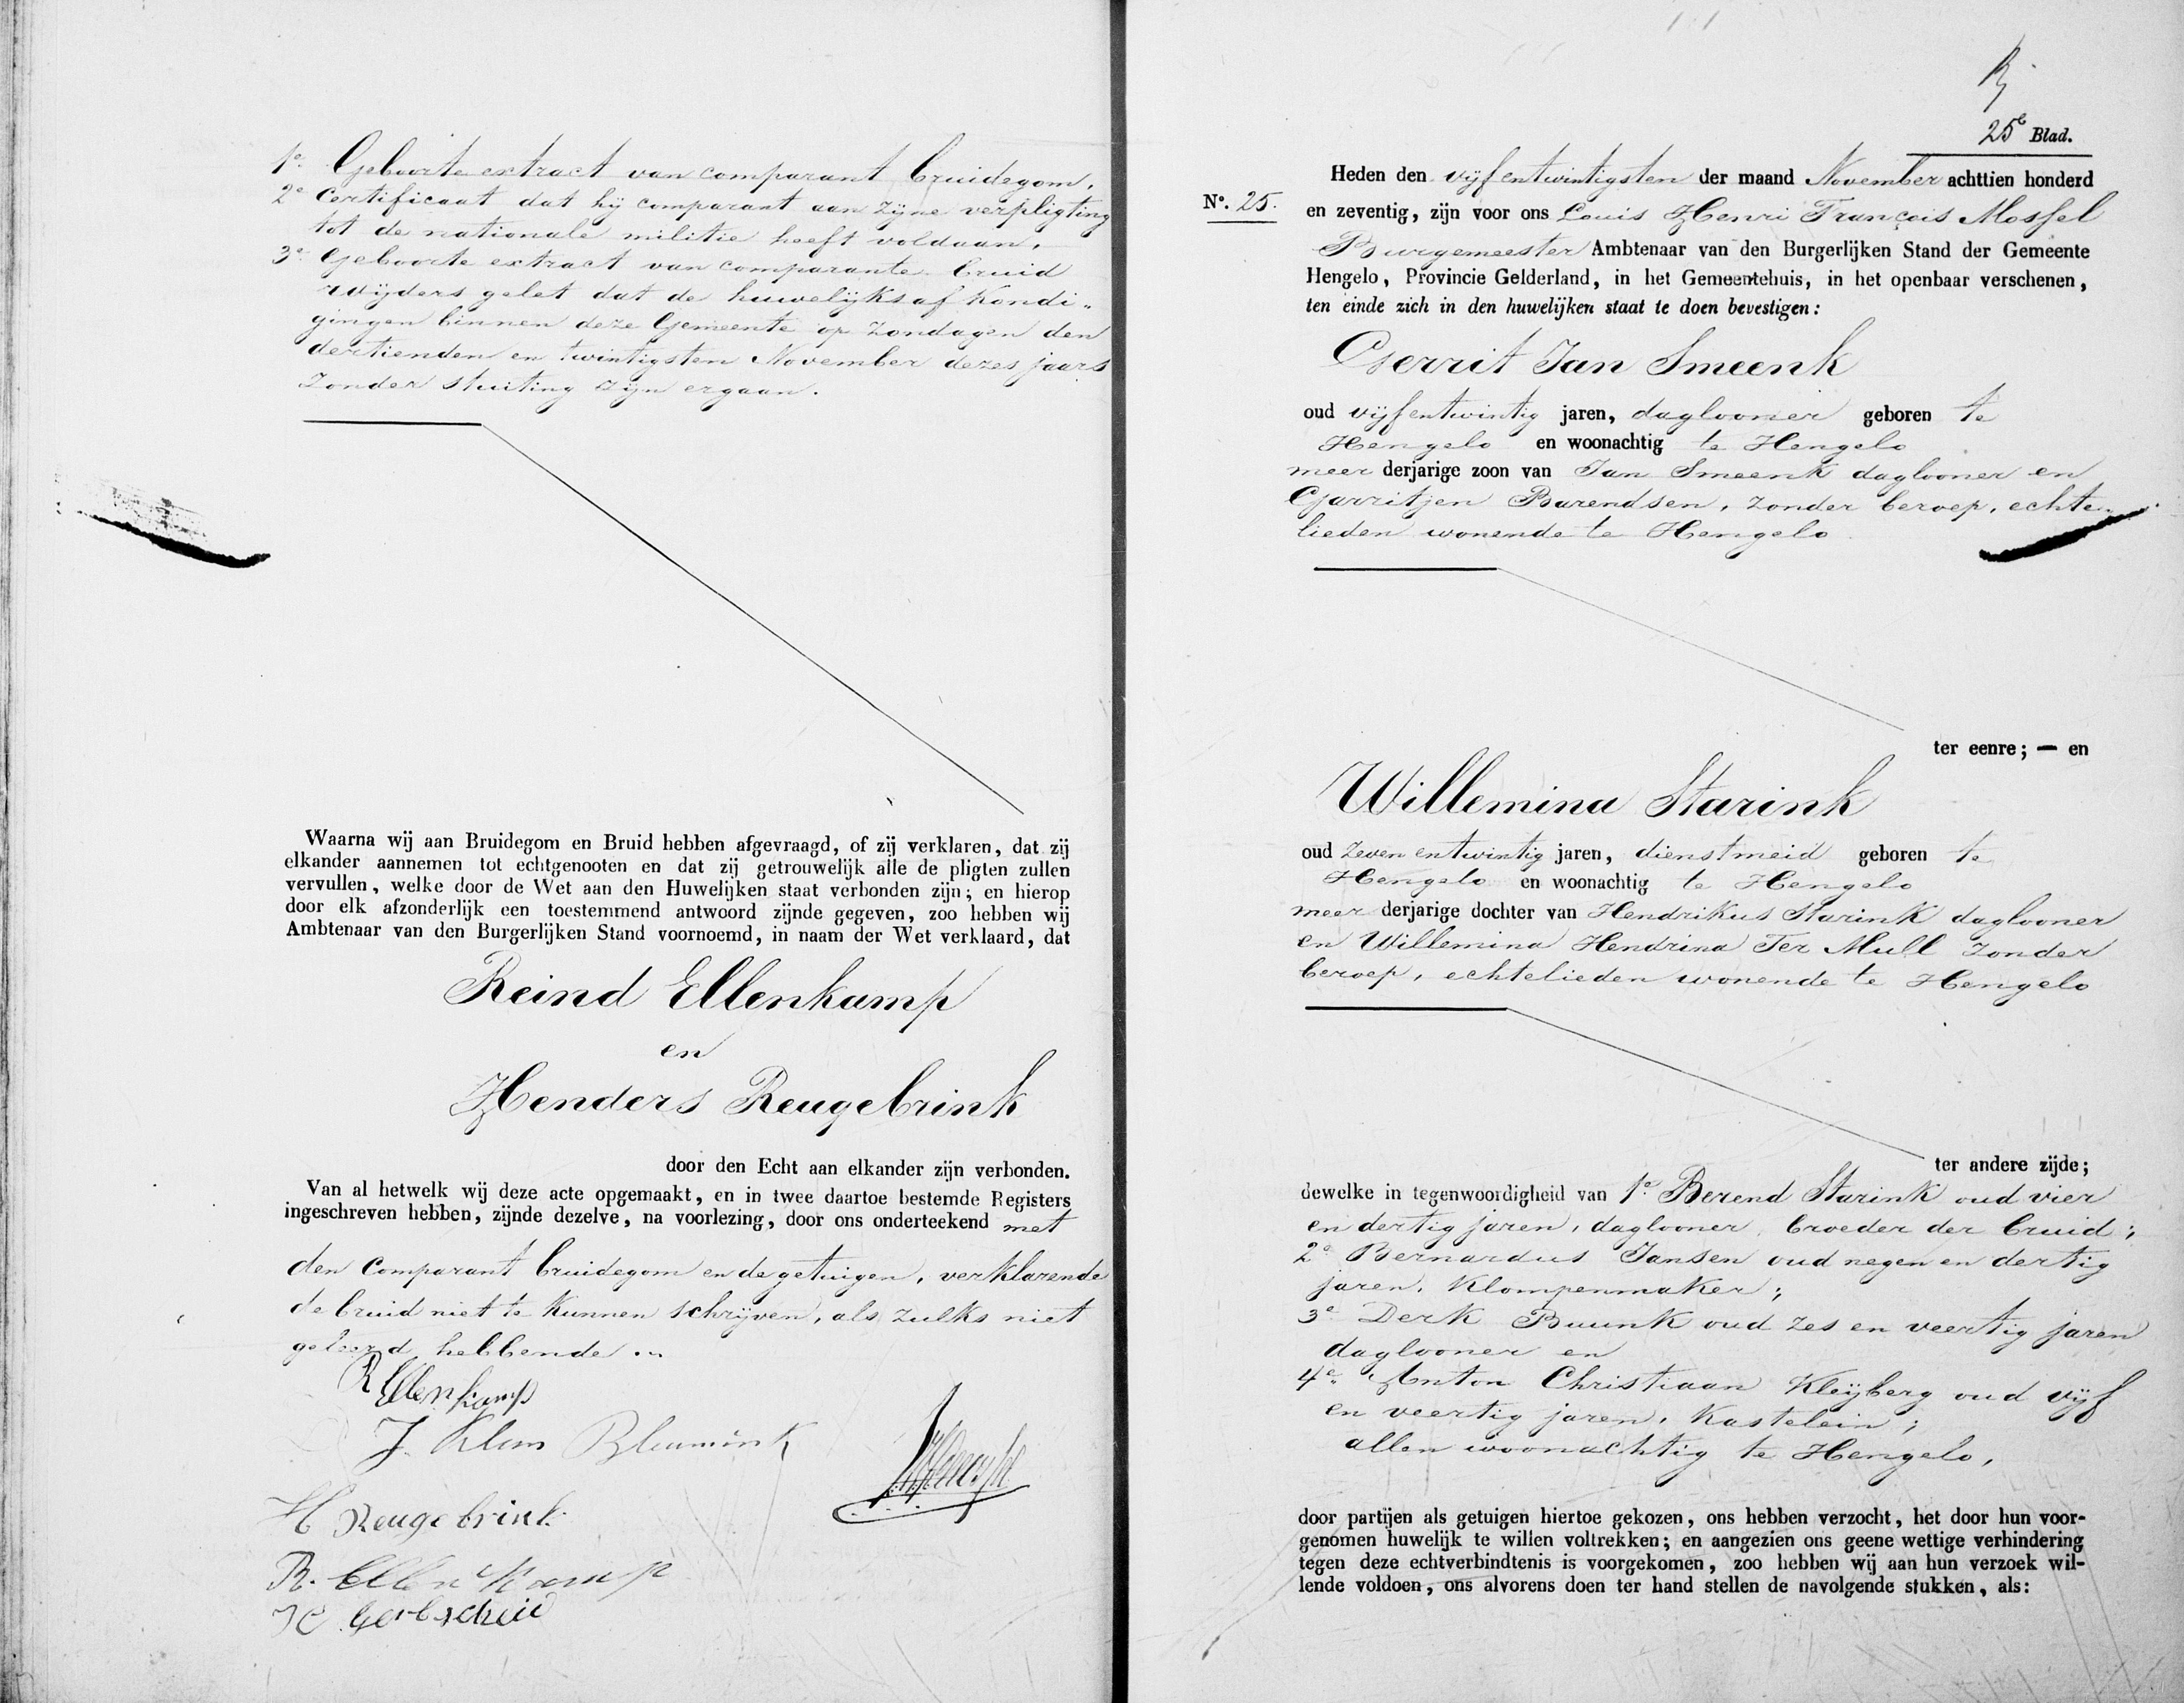 1e. Geboorte extract van comparant bruidegom,
2e Certificaat dat hij comparant aan zijne verpligting
tot de nationale militie heeft voldaan,
3e. Geboorte extract van comparante bruid
wijders gelet dat de huwelijksaf kondi„
gingen binnen deze Gemeente op zondagen den
dertienden en twintigsten November dezes jaars
zonder stuiting zijn ergaan.
Waarna wij aan Bruidegom en Bruid hebben afgevraagd, of zij verklaren, dat zij
elkander aannemen tot echtgenooten en dat zij getrouwelijk alle de pligten zullen
vervullen, welke door de Wet aan den Huwelijken staat verbonden zijn; en hierop
door elk afzonderlijk een toestemmend antwoord zijnde gegeven, zoo hebben wij
Ambtenaar van den Burgerlijken Stand voornoemd, in naam der Wet verklaard, dat
Reind Ellenkamp
en
Henders Reugebrink
door den Echt aan elkander zijn verbonden.
Van al hetwelk wij deze acte opgemaakt, en in twee daartoe bestemde Registers
ingeschreven hebben, zijnde dezelve, na voorlezing, door ons onderteekend met
den Comparant bruidegom en de getuigen, verklarende
de bruid niet te kunnen schrijven, als zulks niet
geleerd hebbende.
R Ellenkamp
J. Klein Bleumink
H Reugebrink
R. Ellenkamp
25e Blad.
Heden den vijfentwintigsten der maand November achttien honderd
No. 25.
en zeventig, zijn voor ons Louis Henri François Mossel
Burgemeester Ambtenaar van den Burgerlijken Stand der Gemeente
Hengelo, Provincie Gelderland, in het Gemeentehuis, in het openbaar verschenen,
ten einde zich in den huwelijken staat te doen bevestigen:
Gerrit Jan Smeenk
oud vijfentwintig jaren, daglooner geboren te
Hengelo en woonachtig te Hengelo
meer derjarige zoon van Jan Smeenk daglooner en
Garritjen Barendsen, zonder beroep, echte
lieden wonende te Hengelo
ter eenre; — en
Willemina Starink
oud zeven entwintig jaren, dienstmeid geboren te
Hengelo en woonachtig te Hengelo
meer derjarige dochter van Hendrikus Starink daglooner
en Willemina Hendrina Ter Mull zonder
beroep, echtelieden wonende te Hengelo
ter andere zijde;
dewelke in tegenwoordigheid van 1e. Berend Starink oud vier
en dertig jaren, daglooner, broeder der bruid;
2e Bernardus Jansen oud negen en dertig
jaren, klompenmaker;
3e Derk Buunk oud zes en veertig jaren
daglooner en
4e. Anton Christiaan Kleijberg oud vijf
en veertig jaren, kastelein;
allen woonachtig te Hengelo,
door partijen als getuigen hiertoe gekozen, ons hebben verzocht, het door hun voor-
genomen huwelijk te willen voltrekken; en aangezien ons geene wettige verhindering
tegen deze echtverbindtenis is voorgekomen, zoo hebben wij aan hun verzoek wil-
lende voldoen, ons alvorens doen ter hand stellen de navolgende stukken, als: